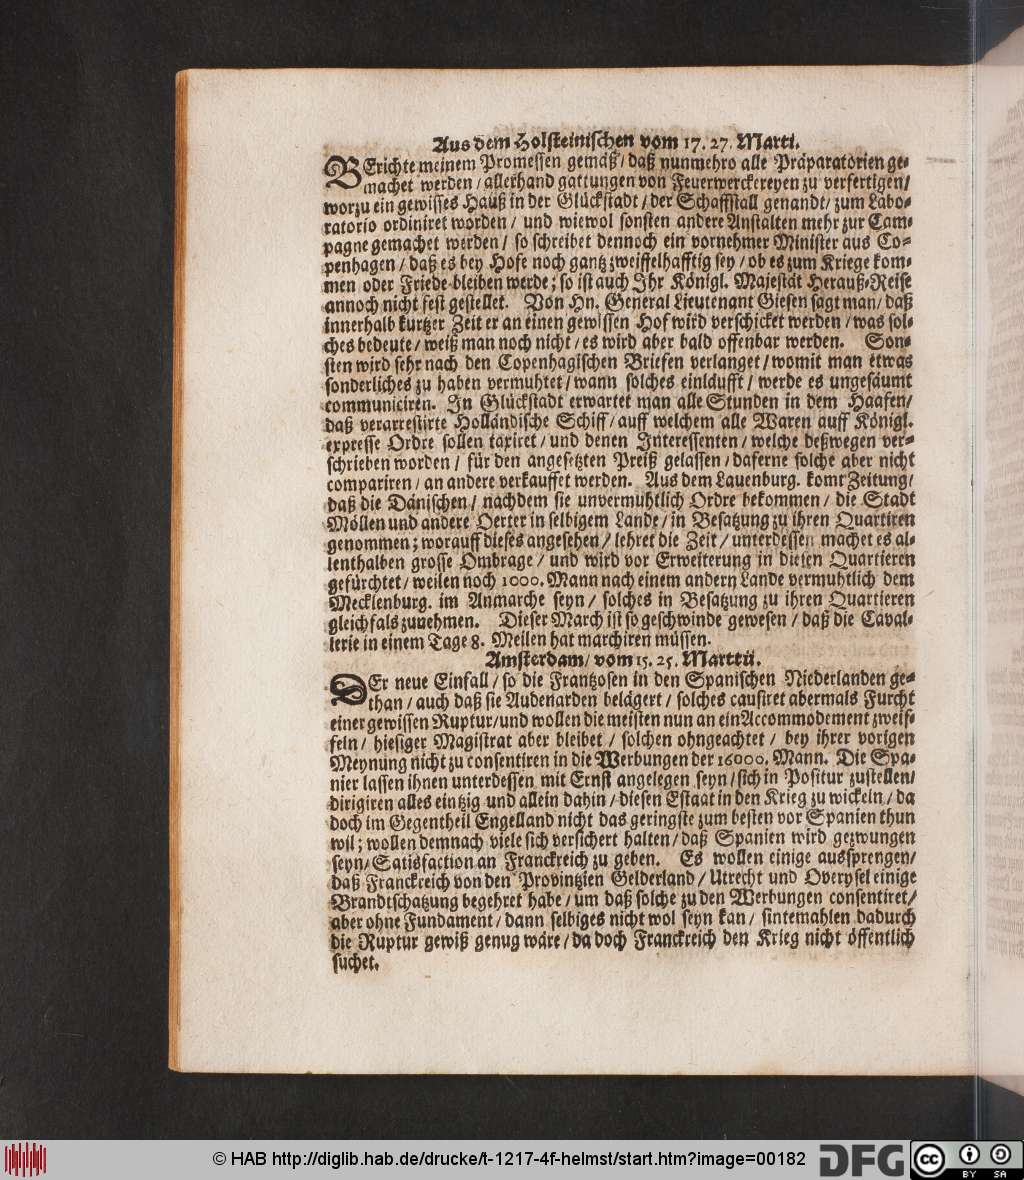 Aus dem Holsteinischen vom 17. 27. Marti.
BErichte meinem Promessen gemäß / daß nunmehro alle Präparatorien ge-
machet werden / allerhand gattungen von Feuerwerckereyen zu verfertigen /
worzu ein gewisses Hauß in der Glückstadt / der Schaffstall genandt / zum Labo-
ratorio ordiniret worden / und wiewol sonsten andere Anstalten mehr zur Cam-
pagne gemachet werden / so schreibet dennoch ein vornehmer Minister aus Co-
penhagen / daß es bey Hofe noch gantz zweiffelhafftig sey / ob es zum Kriege kom-
men oder Friede bleiben werde; so ist auch Ihr Königl. Majestät Herauß-Reise
annoch nicht fest gestellet. Von Hn. General Lieutenant Giesen sagt man / daß
innerhalb kurtzer Zeit er an einen gewissen Hof wird verschicket werden / was sol-
ches bedeute / weiß man noch nicht / es wird aber bald offenbar werden. Son-
sten wird sehr nach den Copenhagischen Briefen verlanget / womit man etwas
sonderliches zu haben vermuhtet / wann solches einläufft / werde es ungesäumt
communiciren. In Glückstadt erwartet man alle Stunden in dem Haafen /
daß verarrestirte Holländische Schiff / auff welchem alle Waren auff Königl.
expresse Ordre sollen taxiret / und denen Interessenten / welche deßwegen ver-
schrieben worden / für den angesetzten Preiß gelassen / daferne solche aber nicht
compariren / an andere verkauffet werden. Aus dem Lauenburg. komt Zeitung /
daß die Dänischen / nachdem sie unvermuhtlich Ordre bekommen / die Stadt
Möllen und andere Oerter in selbigem Lande / in Besatzung zu ihren Quartiren
genommen; worauff dieses angesehen / lehret die Zeit / unterdessen machet es al-
lenthalben grosse Ombrage / und wird vor Erweiterung in diesen Quartieren
gefürchtet / weilen noch 1000. Mann nach einem andern Lande vermuhtlich dem
Mecklenburg. im Anmarche seyn / solches in Besatzung zu ihren Quartieren
gleichfals zunehmen. Dieser March ist so geschwinde gewesen / daß die Caval-
lerie in einem Tage 8. Meilen hat marchiren müssen.
Amsterdam / vom 15. 25. Martii.
DEr neue Einfall / so die Frantzosen in den Spanischen Niederlanden ge-
than / auch daß sie Audenarden belägert / solches causiret abermals Furcht
einer gewissen Ruptur / und wollen die meisten nun an ein Accommodement zweif-
feln / hiesiger Magistrat aber bleibet / solchen ohngeachtet / bey ihrer vorigen
Meynung nicht zu consentiren in die Werbungen der 16000. Mann. Die Spa-
nier lassen ihnen unterdessen mit Ernst angelegen seyn / sich in Positur zustellen /
dirigiren alles eintzig und allein dahin / diesen Estaat in den Krieg zu wickeln / da
doch im Gegentheil Engelland nicht das geringste zum besten vor Spanien thun
wil; wollen demnach viele sich versichert halten / daß Spanien wird gezwungen
seyn / Satisfaction an Franckreich zu geben. Es wollen einige aussprengen /
daß Franckreich von den Provintzien Gelderland / Utrecht und Overysel einige
Brandtschatzung begehret habe / um daß solche zu den Werbungen consentiret /
aber ohne Fundament / dann selbiges nicht wol seyn kan / sintemahlen dadurch
die Ruptur gewiß genug wäre / da doch Franckreich den Krieg nicht öffentlich
suchet.
© HAB http://diglib.hab.de/drucke/t-1217-4f-helmst/start.htm?image=00182
DFG
cc
BY SA